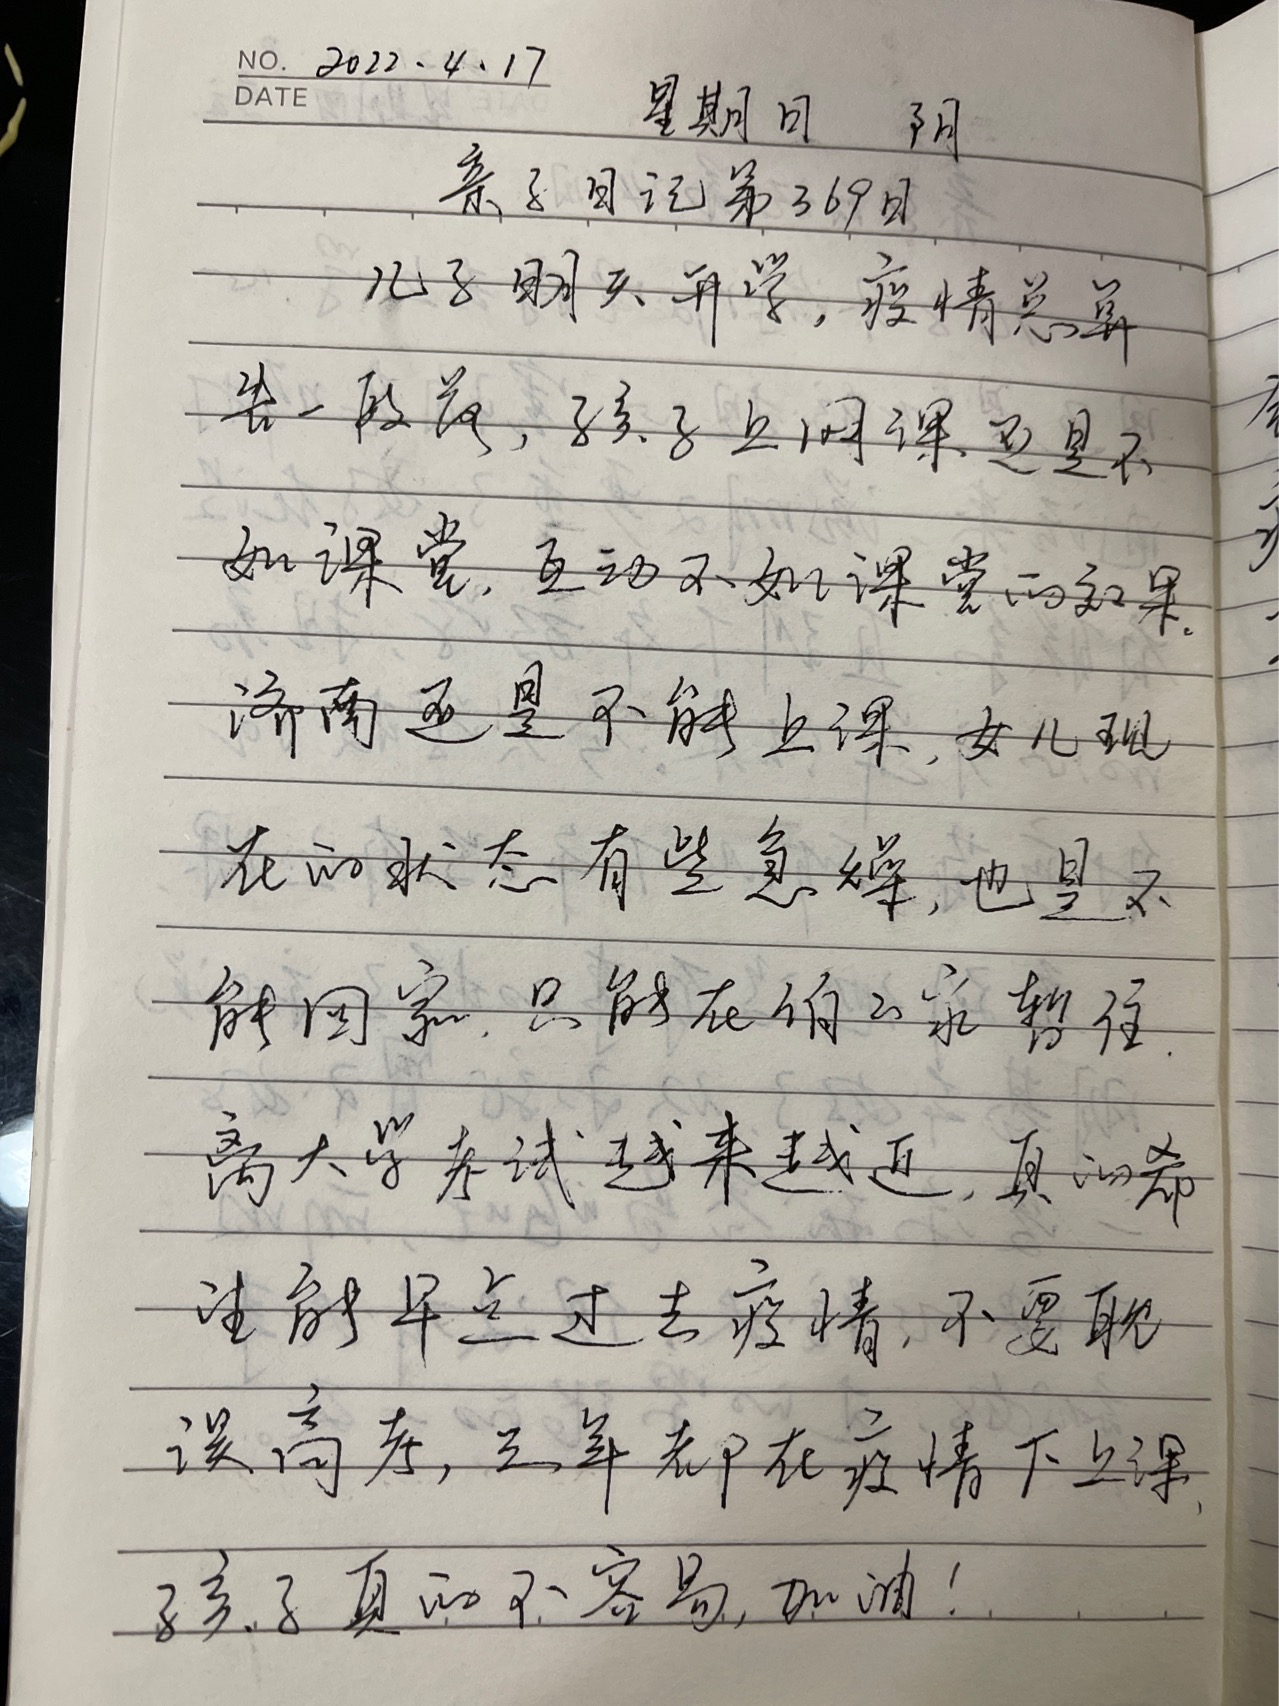 NO. 2022.4.17
DATE
星期日 阴
亲子日记第369日
儿子明天开学,疫情总算
告一段落,孩子上网课还是不
如课堂,互动不如课堂的效果.
济南还是不能上课,女儿现
在的状态有些急燥,也是不
能回家.只能在伯公家暂住.
离大学考试越来越近,真的希
望能早点过去疫情,不要耽
误高考,三年都在疫情下上课,
孩子真的不容易,加油!